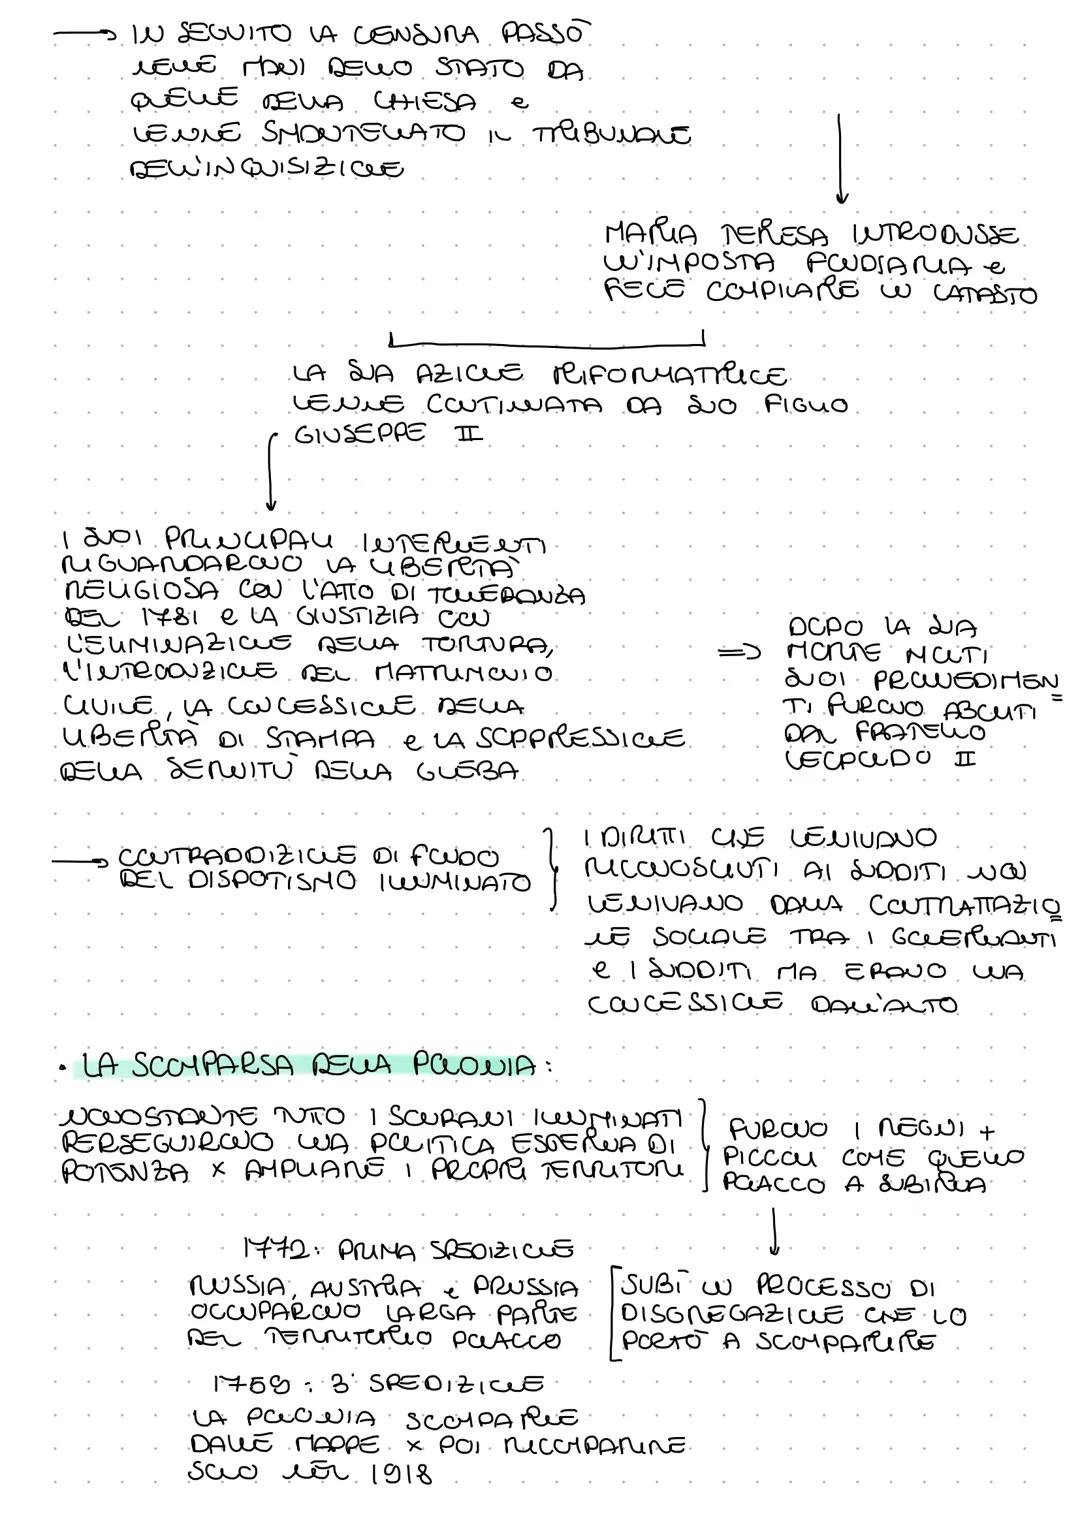 → IN SEGUITO LA CENSURA PASSÒ
NELLE MANI DELLO STATO DA
QUELLE DELLA CHIESA e
VENNE SMONTELLATO IL TRIBUNALE
DELL'INQUISIZIONE
MARIA TERESA INTRODUSSE
UN'IMPOSTA FONDIARIA e
FECE COMPILARE UN CATASTO
LA SUA AZIONE RIFORMATRICE
VENNE CONTINUATA DA SUO FIGLIO
GIUSEPPE II
I SUOI PRINCIPALI INTERVENTI
RIGUARDARONO LA LIBERTÀ
RELIGIOSA CON L'ATTO DI TOLLERANZA
DEL 1781 e LA GIUSTIZIA CON
L'ELIMINAZIONE DELLA TORTURA,
L'INTRODUZIONE DEL MATRIMONIO
CIVILE, LA CONCESSIONE DELLA
LIBERTÀ DI STAMPA e LA SOPPRESSIONE
DELLA SERVITÙ DELLA GLEBA
=> DOPO LA SUA
MORTE MOLTI
SUOI PROVVEDIMEN
TI FURONO ABOLITI
DAL FRATELLO
LEOPOLDO II
→ CONTRADDIZIONE DI FONDO
DEL DISPOTISMO ILLUMINATO
I DIRITTI CHE VENIVANO
RICONOSCIUTI AI SUDDITI NON
VENIVANO DALLA CONTRATTAZIO
NE SOCIALE TRA I GOVERNANTI
e I SUDDITI MA ERANO UNA
CONCESSIONE DALL'ALTO
• LA SCOMPARSA DELLA POLONIA:
NONOSTANTE TUTTO I SOVRANI ILLUMINATI
PERSEGUIRONO UNA POLITICA ESTERNA DI
POTENZA x AMPLIARE I PROPRI TERRITORI
FURONO I REGNI +
PICCOLI COME QUELLO
POLACCO A SUBIRLA
1772: PRIMA SPEDIZIONE
RUSSIA, AUSTRIA e PRUSSIA
OCCUPARONO LARGA PARTE
DEL TERRITORIO POLACCO
SUBÌ UN PROCESSO DI
DISGREGAZIONE CHE LO
PORTÒ A SCOMPARIRE
1759: 3° SPEDIZIONE
LA POLONIA SCOMPARVE
DALLE MAPPE x POI RICOMPARIRE
SOLO NEL 1918